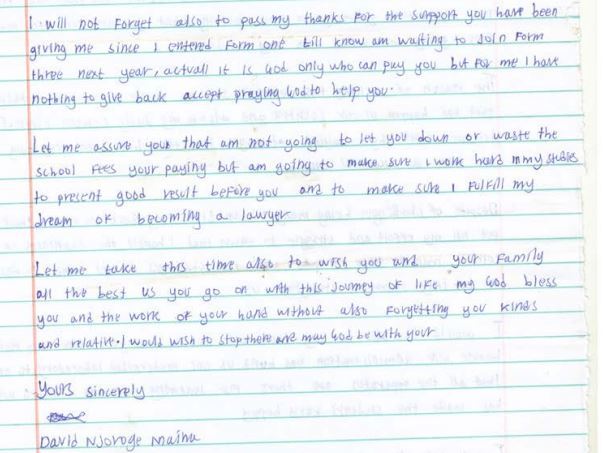 I will not forget also to pass my thanks for the support you have been
giving me since I entered form one till know am waiting to join form
three next year, actuall it is God only who can pay you but for me I have
nothing to give back accept praying God to help you.
Let me assure your that am not going to let you down or waste the
school fees your paying but am going to make sure I work hard in my studies
to present good result before you and to make sure I fulfill my
dream of becoming a lawyer
Let me take this time also to wish you and your family
all the best us you go on with this journey of life my God bless
you and the work of your hand without also forgetting you kinds
and relative. I would wish to stop there and may God be with your
Yours sincerely
David Njoroge Maina